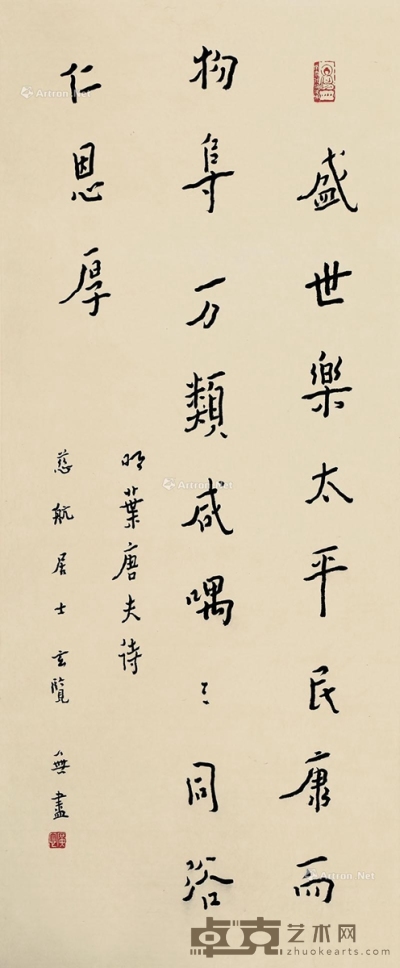 盛世樂太平民康而
物阜万類咸喁〻同浴
仁恩厚
明葉唐夫詩
慈航居士玄覽 無盡
Artron.Net
卓克艺术网
zhuokearts.com